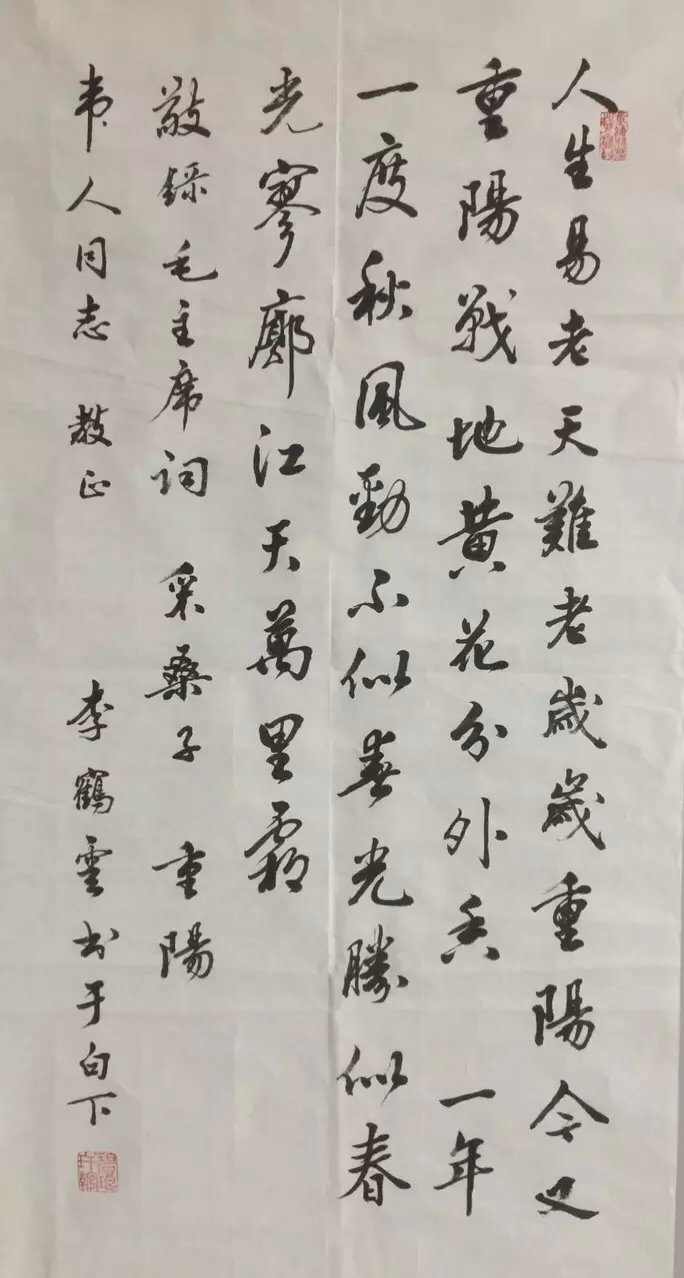 人生易老天難老歲歲重陽今又
重陽戰地黄花分外香 一年
一度秋風勁不似春光勝似春
光寥廓江天萬里霜
敬録毛主席词 采桑子 重陽
韦人同志 教正 李鶴雲书于白下